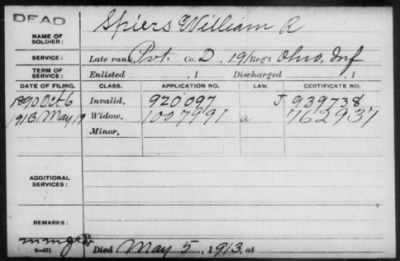 DEAD
NAME OF SOLDIER: Spiers William R
SERVICE: Late rank Pvt. Co. D, 191 Reg't Ohio Inf
TERM OF SERVICE: Enlisted , 1 Discharged , 1
DATE OF FILING. CLASS. APPLICATION NO. LAW. CERTIFICATE NO.
1890 Oct 6 Invalid, 920097 J 939738
1913 May 19 Widow, 1007991 a 762937
Minor,
ADDITIONAL SERVICES:
REMARKS:
Died May 5, 1913, at